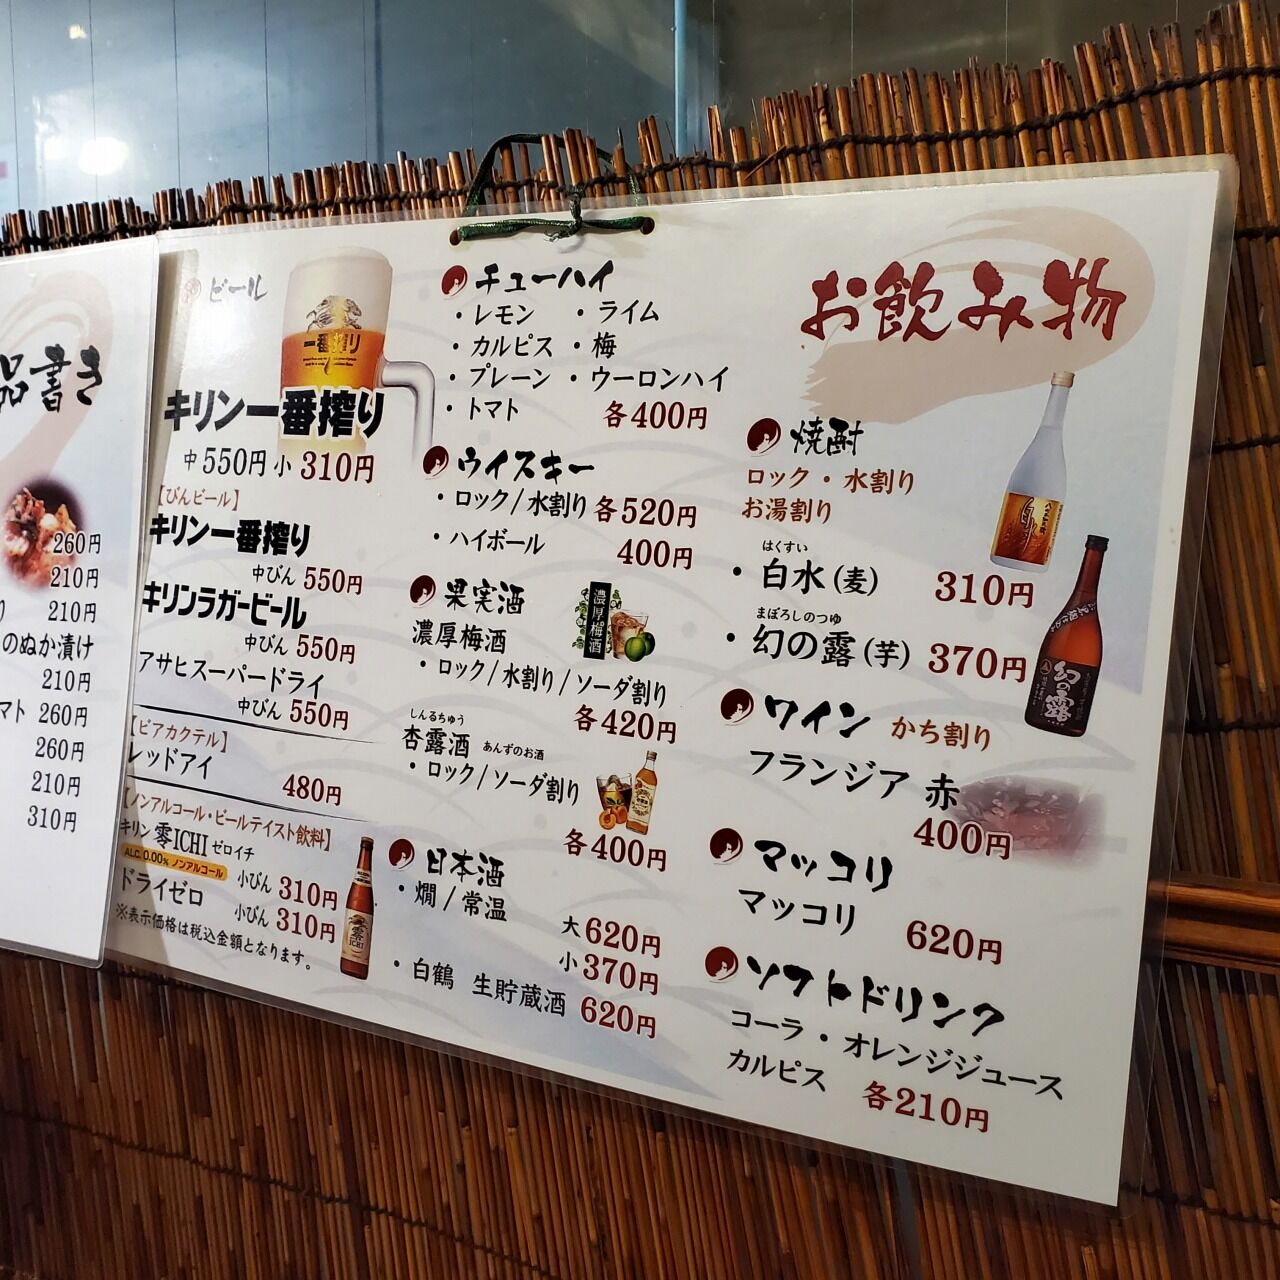 品書き
260円
210円
210円
のぬか漬け
210円
マト 260円
260円
210円
310円
お飲み物
ビール
一番搾り
キリン一番搾り
中 550円 小 310円
【びんビール】
キリン一番搾り
中びん 550円
キリンラガービール
中びん 550円
アサヒスーパードライ
中びん 550円
【ビアカクテル】
レッドアイ
480円
【ノンアルコール・ビールテイスト飲料】
キリン 零ICHI ゼロイチ
ALC.0.00% ノンアルコール
小びん 310円
ドライゼロ
小びん 310円
※表示価格は税込金額となります。
零ICHI
チューハイ
・レモン ・ライム
・カルピス ・梅
・プレーン ・ウーロンハイ
・トマト 各400円
ウイスキー
・ロック/水割り 各520円
・ハイボール 400円
果実酒
濃厚梅酒
濃厚梅酒
・ロック/水割り/ソーダ割り
各420円
しんるちゅう
杏露酒 あんずのお酒
・ロック/ソーダ割り
各400円
日本酒
・燗/常温
大 620円
小 370円
・白鶴 生貯蔵酒 620円
焼酎
ロック・水割り
お湯割り
はくすい
・白水(麦) 310円
まぼろしのつゆ
・幻の露(芋) 370円
白水
幻の露
ワイン かち割り
フランジア 赤
400円
マッコリ
マッコリ
620円
ソフトドリンク
コーラ・オレンジジュース
カルピス 各210円